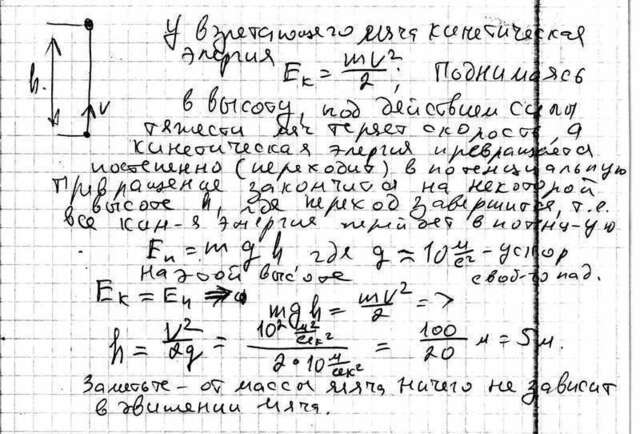 У взлетающего мяча кинетическая
энергия
Eк = mv²/2; Поднимаясь
h
v
в высоту, под действием силы
тяжести мяч теряет скорость, а
кинетическая энергия превращается
постепенно (переходит) в потенциальную
Превращение закончится на некоторой
высоте h, где переход завершится, т.е.
все кин-я энергия перейдет в потен-ую
Eп = m g h где g ≈ 10 м/с² - ускор
на этой высоте свой-го пад.
Eк = Eп =>
mgh = mv²/2 =>
h = v²/2g = 10² м²/сек² / 2·10 м/сек² = 100/20 м = 5 м.
Заметьте - от массы мяча ничего не зависит
в движении мяча.